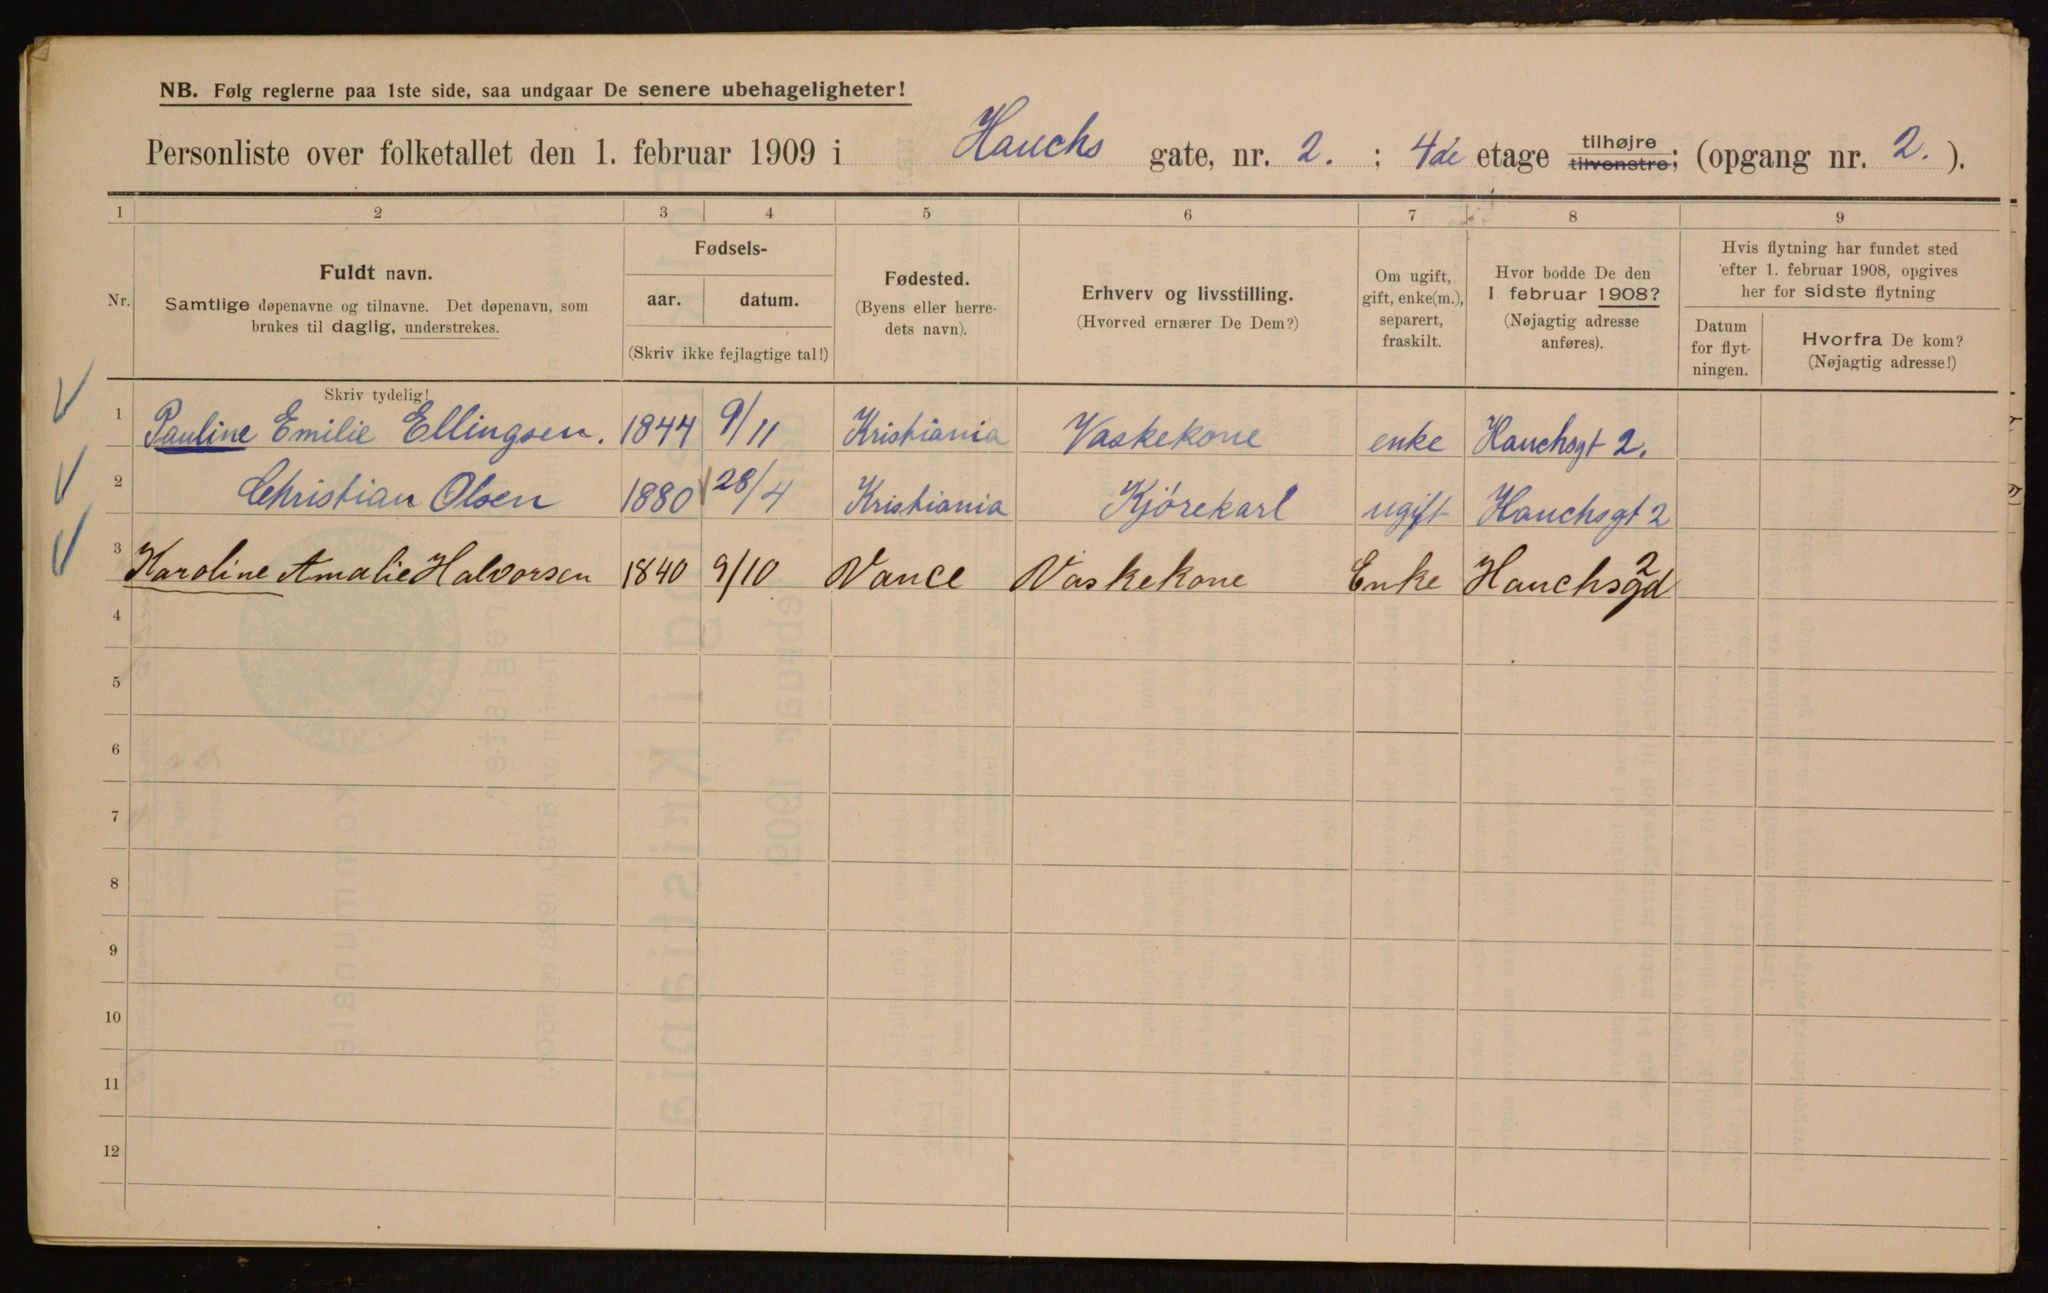 NB. Følg reglerne paa 1ste side, saa undgaar De senere ubehageligheter!
Personliste over folketallet den 1. februar 1909 i Hauchs gate, nr. 2. ; 4de etage tilhøjre tilvenstre; (opgang nr. 2. ).
1 2 3 4 5 6 7 8 9
Nr.
Fuldt navn.
Samtlige døpenavne og tilnavne. Det døpenavn, som
brukes til daglig, understrekes.
Fødsels-
aar. datum.
(Skriv ikke fejlagtige tal!)
Fødested.
(Byens eller herre-
dets navn).
Erhverv og livsstilling.
(Hvorved ernærer De Dem?)
Om ugift,
gift, enke(m.),
separert,
fraskilt.
Hvor bodde De den
1 februar 1908?
(Nøjagtig adresse
anføres).
Hvis flytning har fundet sted
efter 1. februar 1908, opgives
her for sidste flytning
Datum
for flyt-
ningen.
Hvorfra De kom?
(Nøjagtig adresse!)
Skriv tydelig!
1 Pauline Emilie Ellingsen. 1844 9/11 Kristiania Vaskekone enke Hauchsgt 2.
2 Christian Olsen 1880 28/4 Kristiania Kjörekarl ugift Hauchsgt 2
3 Karoline Amalie Halvorsen 1840 9/10 Vance Vaskekone Enke Hauchsgd 2
4
5
6
7
8
9
10
11
12